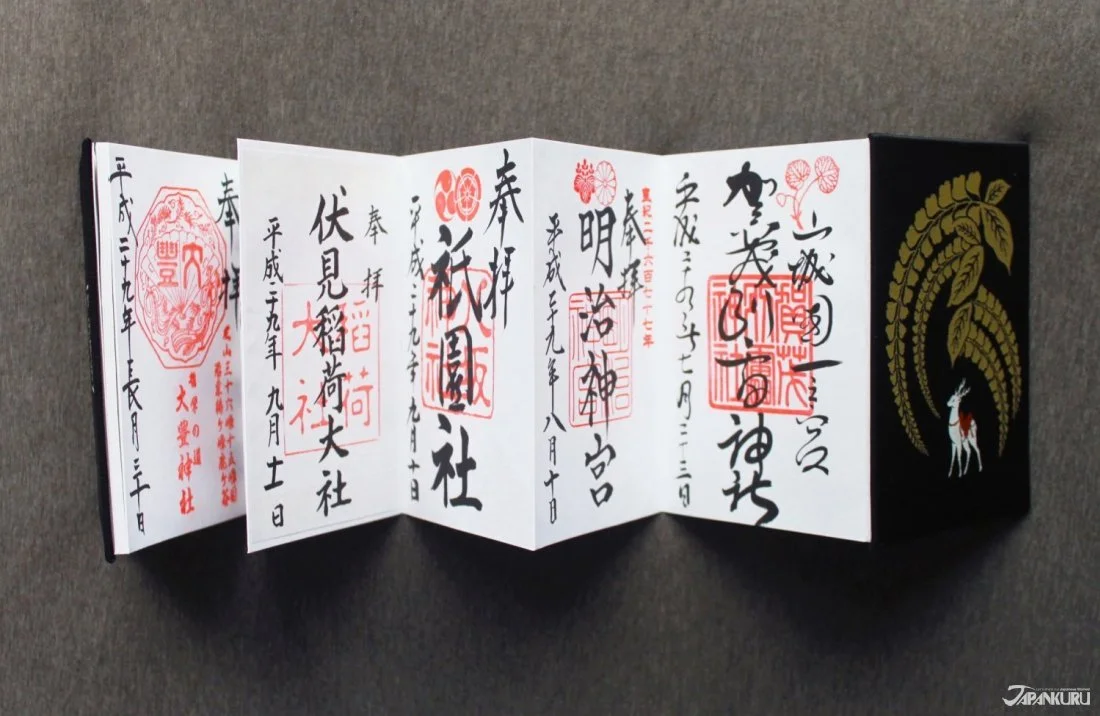 山城国一之宮
賀茂別雷神社
賀茂別雷神社
平成二十九年七月二十三日
皇紀二千六百七十七年
奉拝
明治神宮
明治神宮
平成二十九年八月十日
奉拝
祇園社
八坂神社
平成二十九年九月十日
奉拝
伏見稲荷大社
稲荷大社
平成二十九年九月十一日
奉拝
大豊神社
大豐
平成二十九年長月三十日
JAPANKURU